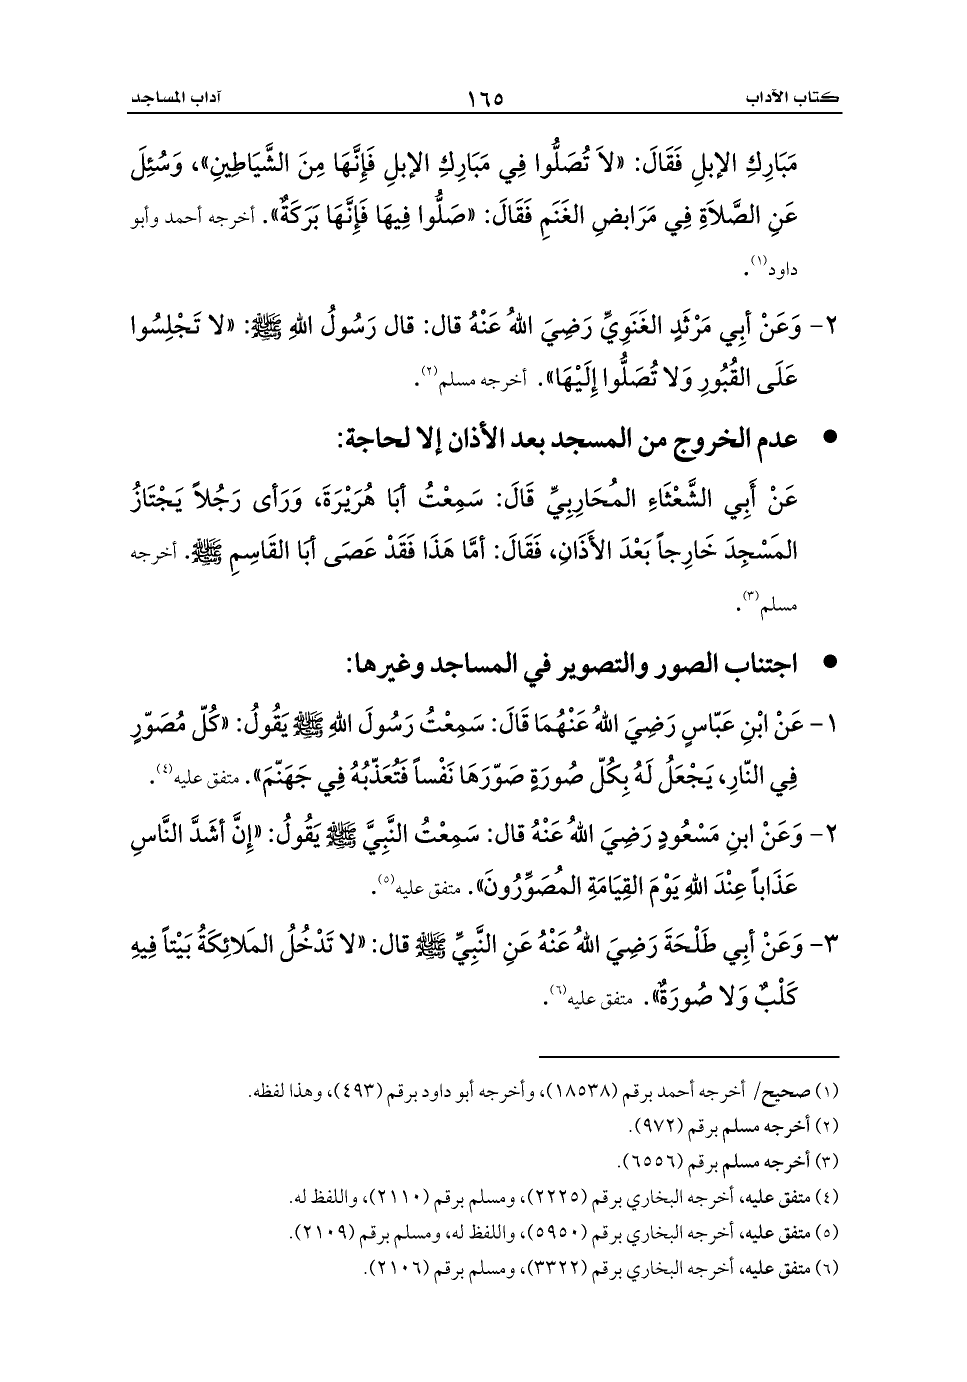 كتاب الآداب ١٦٥ آداب المساجد
مَبَارِكِ الإبلِ فَقَالَ: «لاَ تُصَلُّوا فِي مَبَارِكِ الإبلِ فَإنَّهَا مِنَ الشَّيَاطِينِ»، وَسُئِلَ
عَنِ الصَّلاَةِ فِي مَرَابضِ الغَنَمِ فَقَالَ: «صَلُّوا فِيهَا فَإنَّهَا بَرَكَةٌ». أخرجه أحمد وأبو
داود(١).
٢- وَعَنْ أبِي مَرْثَدٍ الغَنَوِيِّ رَضِيَ اللهُ عَنْهُ قال: قال رَسُولُ اللهِ ﷺ: «لا تَجْلِسُوا
عَلَى القُبُورِ وَلا تُصَلُّوا إلَيْهَا». أخرجه مسلم(٢).
● عدم الخروج من المسجد بعد الأذان إلا لحاجة:
عَنْ أَبِي الشَّعْثَاءِ المُحَاربِيِّ قَالَ: سَمِعْتُ أبَا هُرَيْرَةَ، وَرَأى رَجُلاً يَجْتَازُ
المَسْجِدَ خَارِجاً بَعْدَ الأَذَانِ، فَقَالَ: أمَّا هَذَا فَقَدْ عَصَى أبَا القَاسِمِ ﷺ. أخرجه
مسلم(٣).
● اجتناب الصور والتصوير في المساجد وغيرها:
١- عَنْ ابْنِ عَبّاسٍ رَضِيَ اللهُ عَنْهُمَا قَالَ: سَمِعْتُ رَسُولَ اللهِ ﷺ يَقُولُ: «كُلّ مُصَوّرٍ
فِي النّارِ، يَجْعَلُ لَهُ بِكُلّ صُورَةٍ صَوّرَهَا نَفْساً فَتُعَذّبُهُ فِي جَهَنّمَ». متفق عليه(٤).
٢- وَعَنْ ابنِ مَسْعُودٍ رَضِيَ اللهُ عَنْهُ قال: سَمِعْتُ النَّبِيَّ ﷺ يَقُولُ: «إنَّ أشَدَّ النَّاسِ
عَذَاباً عِنْدَ اللهِ يَوْمَ القِيَامَةِ المُصَوِّرُونَ». متفق عليه(٥).
٣- وَعَنْ أبِي طَلْحَةَ رَضِيَ اللهُ عَنْهُ عَنِ النَّبِيِّ ﷺ قال: «لا تَدْخُلُ المَلائِكَةُ بَيْتاً فِيهِ
كَلْبٌ وَلا صُورَةٌ». متفق عليه(٦).
(١) صحيح/ أخرجه أحمد برقم (١٨٥٣٨)، وأخرجه أبو داود برقم (٤٩٣)، وهذا لفظه.
(٢) أخرجه مسلم برقم (٩٧٢).
(٣) أخرجه مسلم برقم (٦٥٥٦).
(٤) متفق عليه، أخرجه البخاري برقم (٢٢٢٥)، ومسلم برقم (٢١١٠)، واللفظ له.
(٥) متفق عليه، أخرجه البخاري برقم (٥٩٥٠)، واللفظ له، ومسلم برقم (٢١٠٩).
(٦) متفق عليه، أخرجه البخاري برقم (٣٣٢٢)، ومسلم برقم (٢١٠٦).